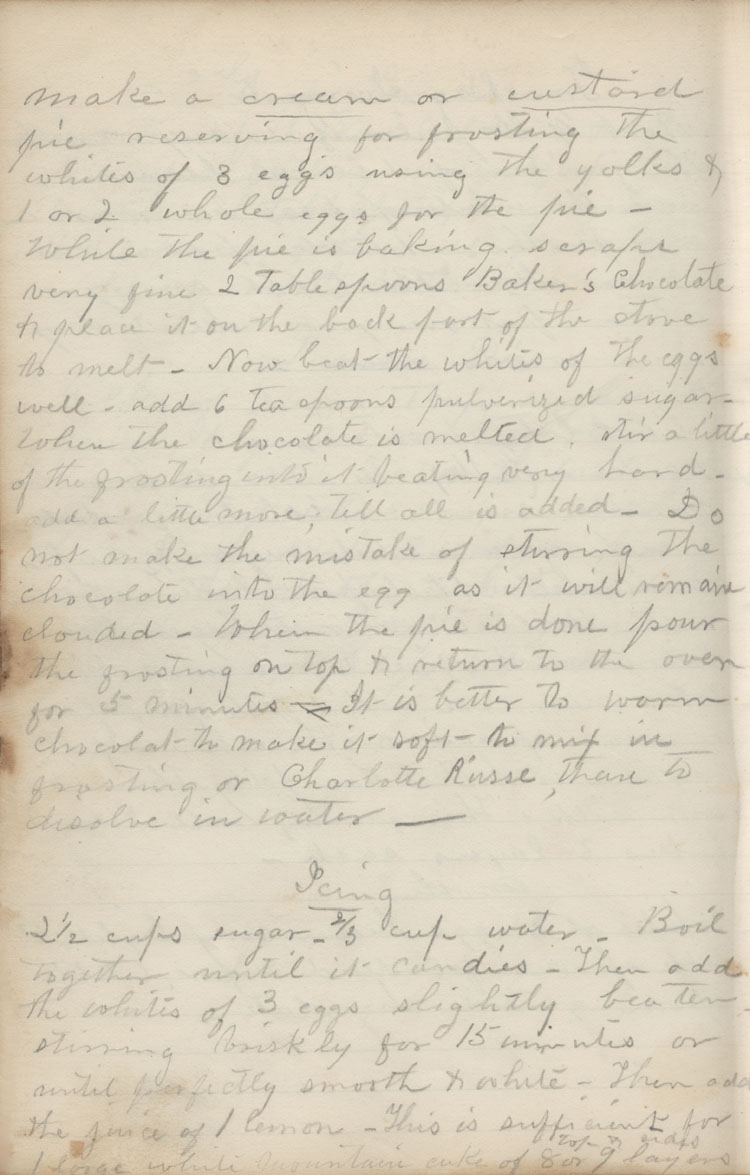 make a cream or custard
pie reserving for frosting the
whites of 3 eggs using the yolks &
1 or 2 whole eggs for the pie -
While the pie is baking scrape
very fine 2 Tablespoons Baker's Chocolate
& place it on the back part of the stove
to melt - Now beat the whites of the eggs
well - add 6 teaspoons pulverized sugar -
When the chocolate is melted, stir a little
of the frosting into it beating very hard -
add a little more, till all is added - Do
not make the mistake of stirring the
chocolate into the egg as it will remain
clouded - When the pie is done pour
the frosting on top & return to the oven
for 5 minutes - It is better to warm
chocolat to make it soft - to mix in
frosting or Charlotte Russe, than to
disolve in water —
Icing
2 1/2 cups sugar - 2/3 cup water - Boil
together until it candies - Then add
the whites of 3 eggs slightly beaten -
stirring briskly for 15 minutes or
until perfectly smooth & white - Then add
the juice of 1 lemon - This is sufficient for
top & sides
1 large white mountain cake of 8 or 9 layers